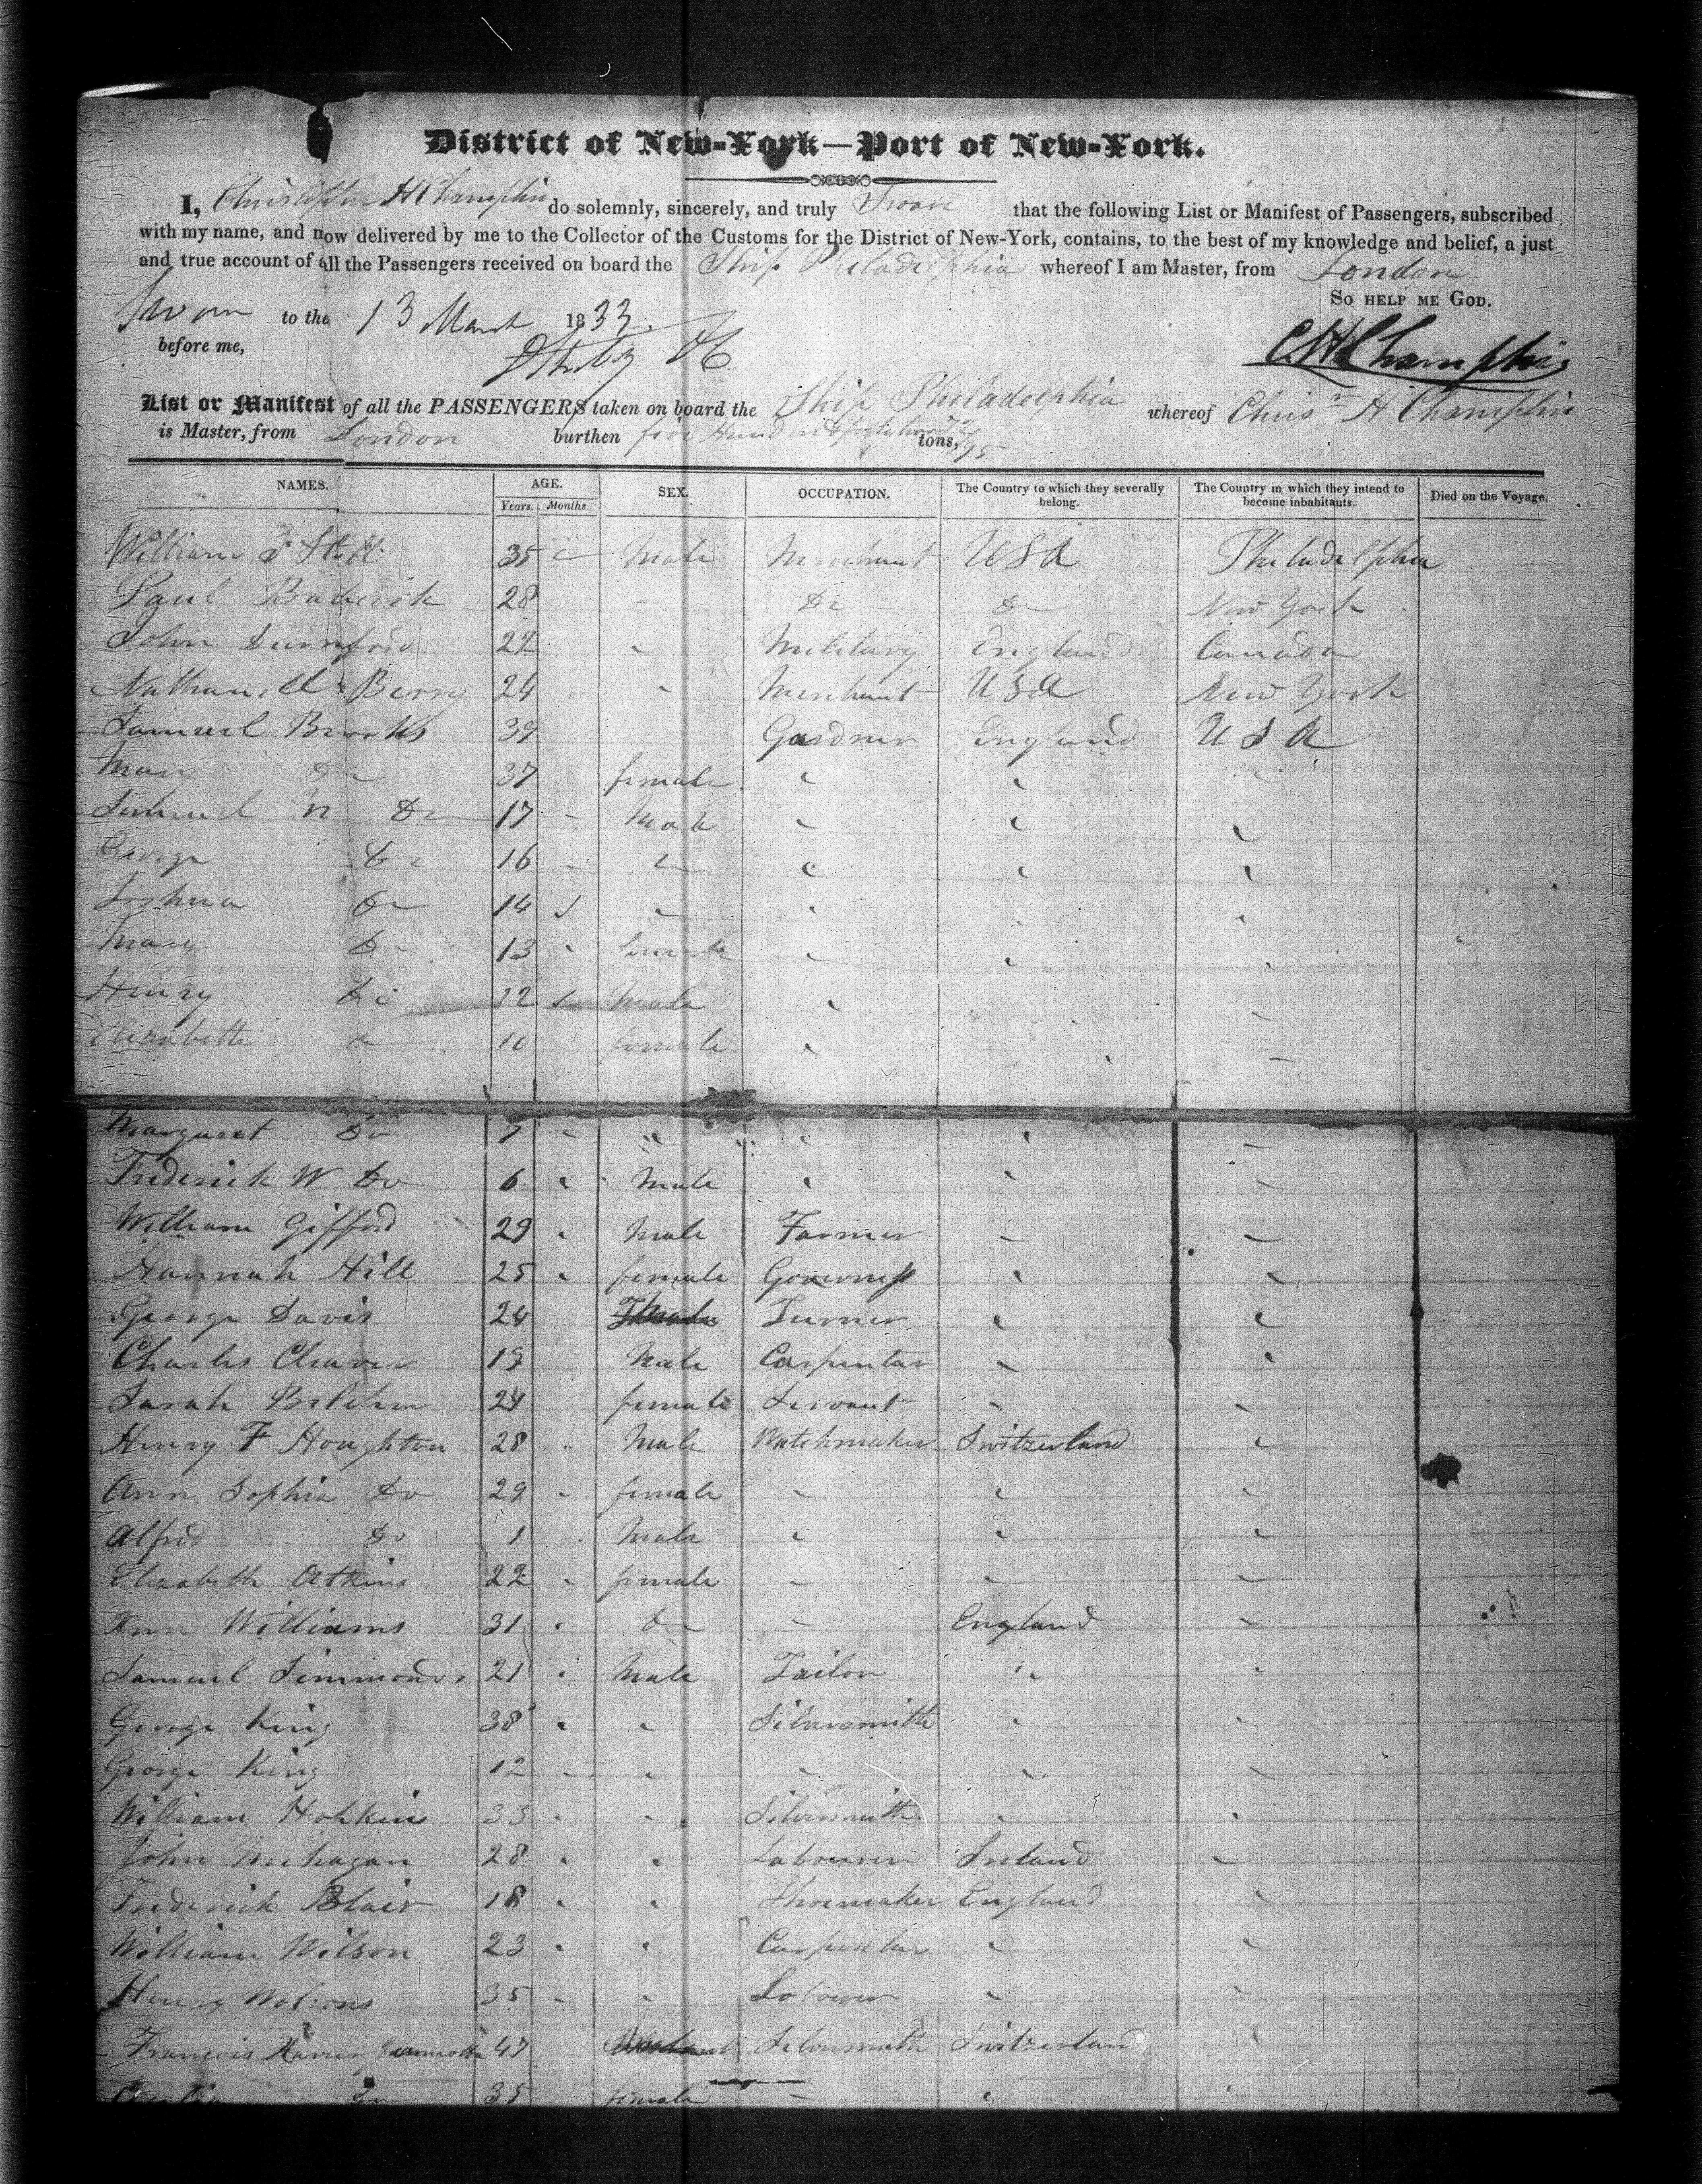 District of New-York—Port of New-York.
I, Christopher H Champlin do solemnly, sincerely, and truly Swear that the following List or Manifest of Passengers, subscribed
with my name, and now delivered by me to the Collector of the Customs for the District of New-York, contains, to the best of my knowledge and belief, a just
and true account of all the Passengers received on board the Ship Philadelphia whereof I am Master, from London
So help me God.
Sworn to the 13 March 1833.
before me,
CHChamplin
List or Manifest of all the PASSENGERS taken on board the Ship Philadelphia whereof Chrisr H Champlin
is Master, from London burthen five Hundred & forty two 72/95 tons,
NAMES. AGE. SEX. OCCUPATION. The Country to which they severally belong. The Country in which they intend to become inhabitants. Died on the Voyage.
Years. Months
William 35 Male Merchant USA Philadelphia
Paul 28 Do Do New York
John Durnford 22 Military England Canada
Nathaniell Berry 24 Merchant USA New York
Samuel Brooks 39 Gardner England USA
Mary Do 37 female
Samuel N Do 17 Male
George Do 16
Joshua Do 14
Mary Do 13 female
Henry Do 12 Male
Elizabeth Do 10 female
Margaret Do 7 "
Frederick W Do 6 Male
William Gifford 29 Male Farmer
Hannah Hill 25 female Governess
George Davis 24 Turner
Charles Cleaver 19 Male Carpenter
Sarah 24 female Servant
Henry F Houghton 28 Male Watchmaker Switzerland
Ann Sophia Do 29 female
Alfred Do 1 Male
Elizabeth Atkins 22 female
Ann Williams 31 Do England
Samuel Simmonds 21 Male Tailor "
George King 38 Silversmith
George King 12
William Hopkins 33 Silversmith
John 28 Labourer Ireland
Frederick Blair 18 Shoemaker England
William Wilson 23 Carpenter
Henry 35 Labourer
Francois Xavier 47 Silversmith Switzerland
Cecilia Do 35 female